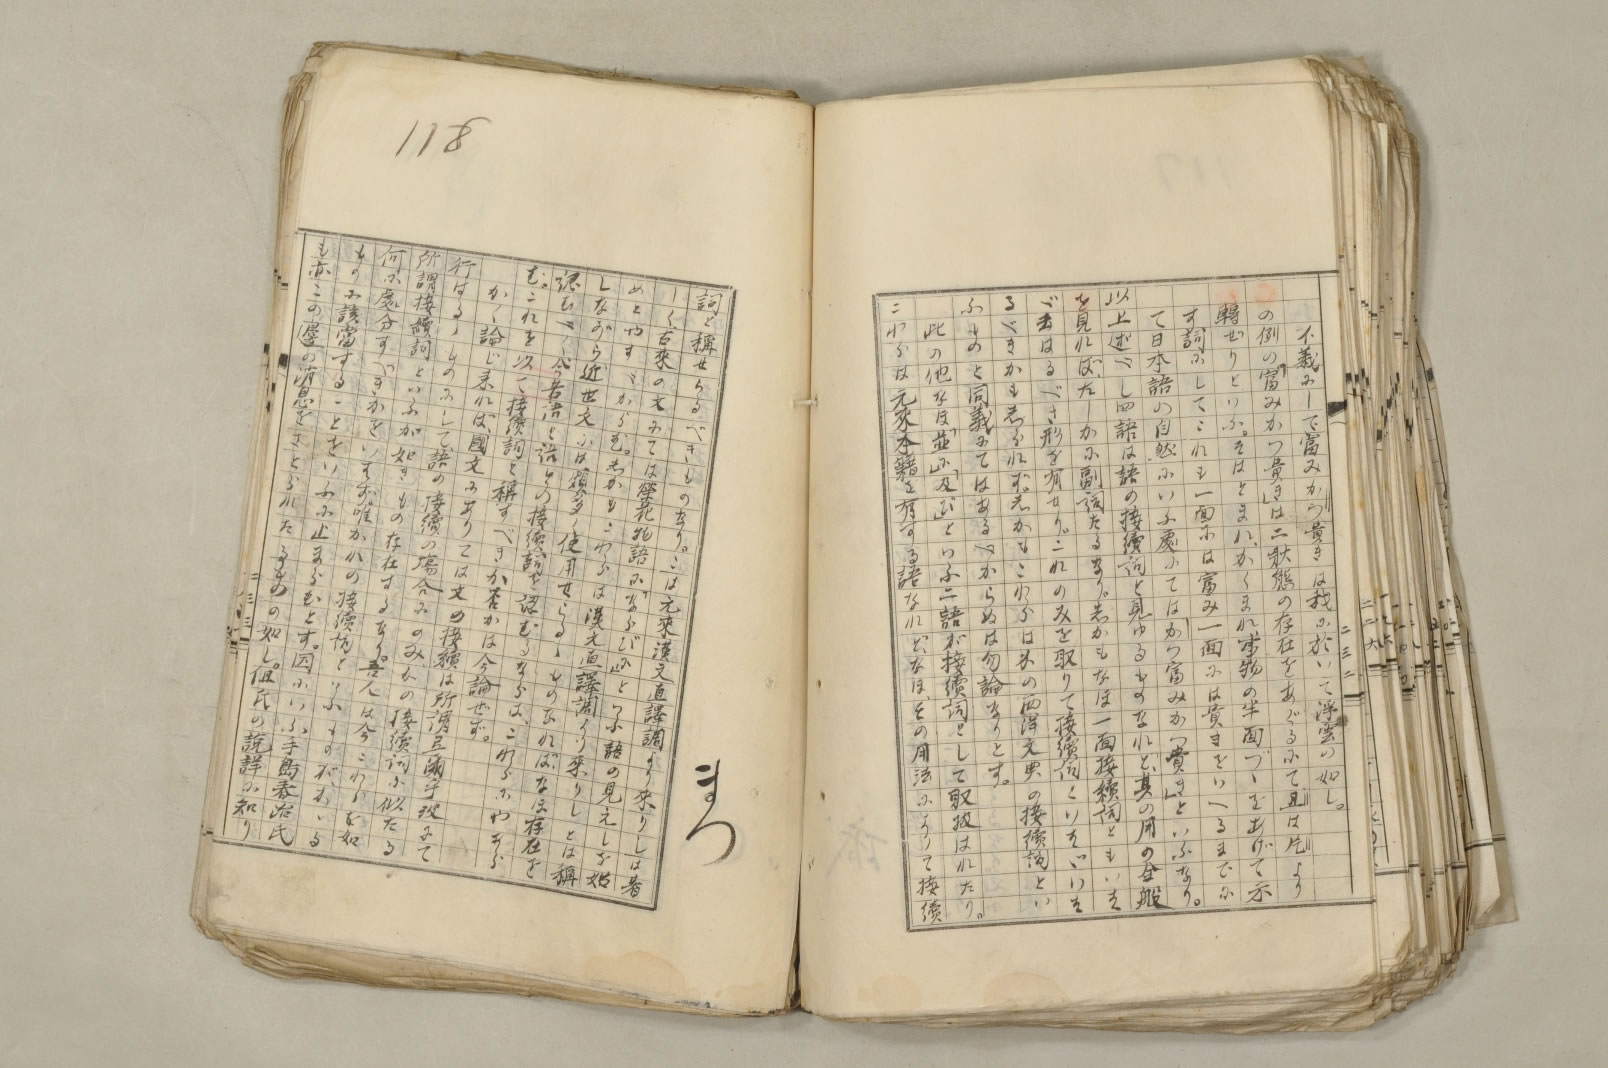 不義にして富みかつ貴きは我に於いて浮雲の如し。
の例の「富みかつ貴き」は二狀態の存在をあぐるにて「且」は「片」より
轉ぜりといふ。そはとまれ、かくまれ事物の半面づゝをあげて示
す詞にしてこれも一面には富み一面には貴きをいへるまでに
て日本語の自然にいふ處にては「かつ富みかつ貴き」といふなり。
以上述べし四語は語の接續詞と見ゆるものなれど、其の用の全般
を見れば、たしかに副詞たるなり。しかもなほ一面接續詞ともいは
ば云はるべき形を有せり。これのみを取りて接續詞といはばいは
るべきかもしられず。しかもこれらは其の西洋文典の接續詞とい
ふものと同義にてはあるべからぬは勿論なりとす。
此の他なほ「並に」「及び」といふ二語が接續詞として取扱はれたり。
これらは元來本籍を有する語なれど、なほ、その用法によりて接續
二三二
118
詞と稱せらるべきものなり。こは元來漢文直譯調より來りしは著
しく古來の文にては榮花物語に「ならびに」といふ語の見えしを始
めとやすべからむ。しかもこれらは漢文直譯調より來りしとは稱
しながら近世文には頻多く使用せらるゝものなれば、なほ存在を
認むべく、今吾語と語との接續詞を認むるならば、これらにやあら
む。これを以て接續詞と稱すべきか否かは今論ぜず。
かく論じ來れば、國文にありては文の接續は所謂弖爾乎波にて
行はるゝものにして語の接續の場合にのみかの接續詞に似たる
所謂接續詞といふが如きもの存在するなり。吾人は今これらを如
何に處分すべきかをいはず、唯かれの接續詞といふものが、かゝる
ものに該當することをいふに止まらむとす。因にいふ、手島春治氏
も亦この邊の消息をさとられたるものの如し。但氏の說詳に知り
二三三
まつ